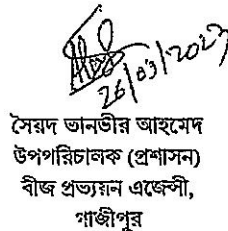 26/03/2023
সৈয়দ তানভীর আহমেদ
উপপরিচালক (প্রশাসন)
বীজ প্রত্যয়ন এজেন্সী,
গাজীপুর